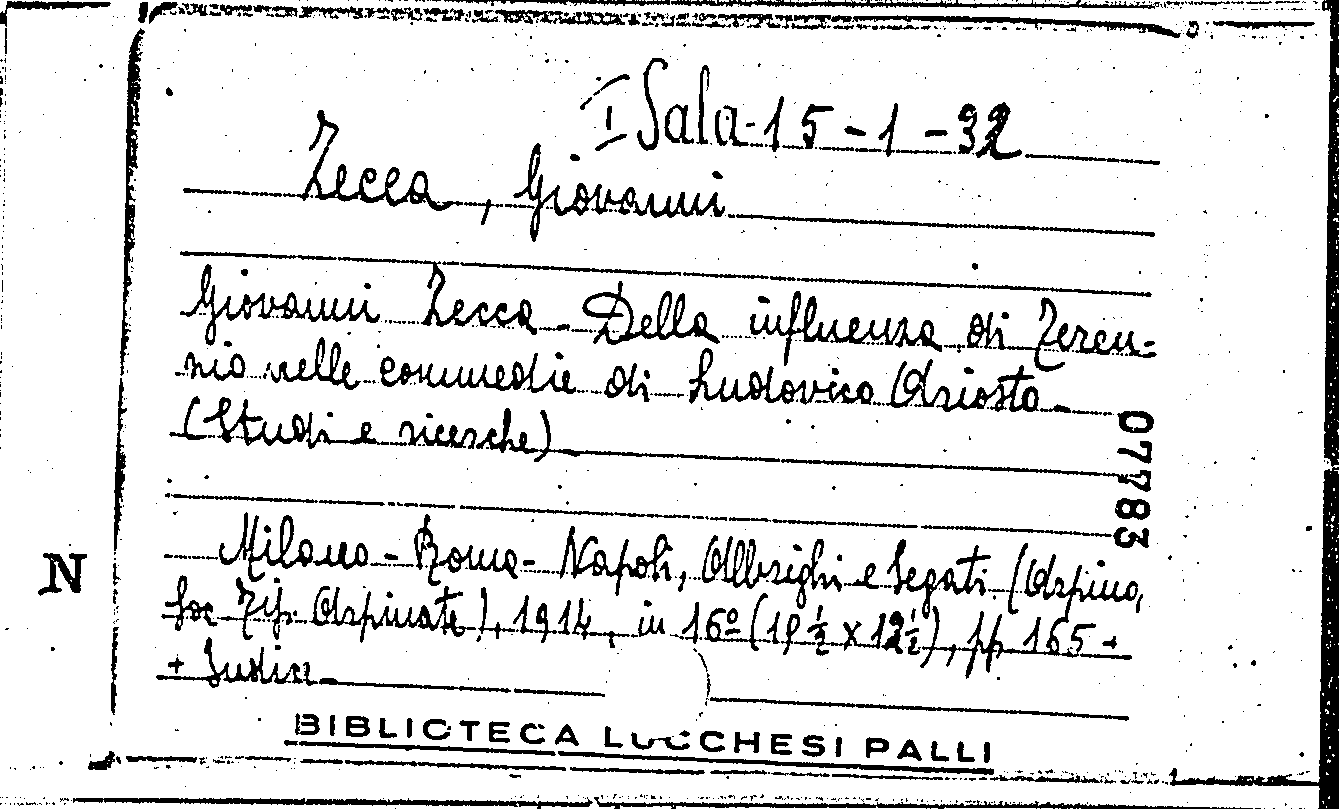 I Sala-15-1-32
Zecca, Giovanni
Giovanni Zecca - Della influenza di Teren-
zio nelle commedie di Ludovico Ariosto -
(Studi e ricerche) -
07783
Milano - Roma - Napoli, Albrighi e Segati (Arpino,
N
Soc Tip. Arpinate), 1914, in 16º (19 ½ x 12 ½), pp 165 +
+ Indice -
BIBLIOTECA LUCCHESI PALLI